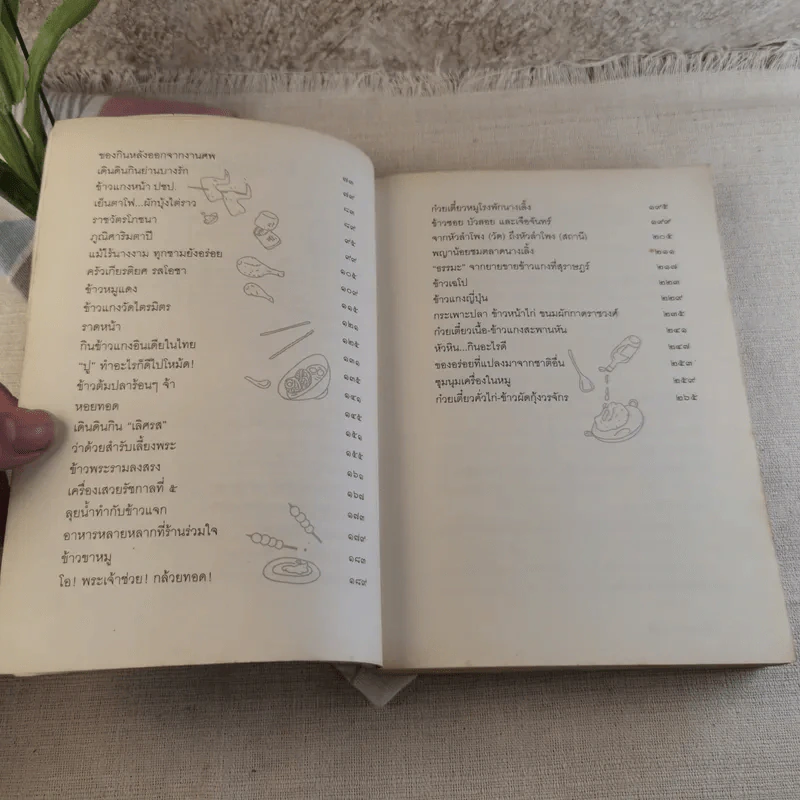 ของกินหลังออกจากงานศพ ๗๓
เดินดินกินย่านบางรัก ๗๙
ข้าวแกงหน้า ปชป. ๘๓
เย็นตาโฟ...ผักบุ้งไต่ราว ๘๙
ราชวัตรโภชนา ๙๕
ภูณิศาริมตาปี ๙๙
แม้ไร้นางงาม ทุกชามยังอร่อย ๑๐๕
ครัวเกียรติยศ รสโอชา ๑๐๙
ข้าวหมูแดง ๑๑๕
ข้าวแกงวัดไตรมิตร ๑๒๑
ราดหน้า ๑๒๕
กินข้าวแกงอินเดียในไทย ๑๓๑
“ปู” ทำอะไรก็ดีไปโหม้ด! ๑๓๕
ข้าวต้มปลาร้อนๆ จ้า ๑๔๑
หอยทอด ๑๔๕
เดินดินกิน “เลิศรส” ๑๕๑
ว่าด้วยสำรับเลี้ยงพระ ๑๕๕
ข้าวพระรามลงสรง ๑๖๑
เครื่องเสวยรัชกาลที่ ๕ ๑๖๗
ลุยน้ำทำกับข้าวแจก ๑๗๓
อาหารหลายหลากที่ร้านร่วมใจ ๑๗๙
ข้าวขาหมู ๑๘๓
โอ! พระเจ้าช่วย! กล้วยทอด! ๑๘๙
ก๋วยเตี๋ยวหมูโรงพักนางเลิ้ง ๑๙๕
ข้าวซอย บัวลอย และเจือจันทร์ ๑๙๙
จากหัวลำโพง (วัด) ถึงหัวลำโพง (สถานี) ๒๐๕
พญาน้อยชมตลาดนางเลิ้ง ๒๑๑
“ธรรมะ” จากยายขายข้าวแกงที่สุราษฎร์ ๒๑๗
ข้าวเฉโป ๒๒๓
ข้าวแกงญี่ปุ่น ๒๒๙
กระเพาะปลา ข้าวหน้าไก่ ขนมผักกาดราชวงศ์ ๒๓๕
ก๋วยเตี๋ยวเนื้อ-ข้าวแกงสะพานหัน ๒๔๑
หัวหิน...กินอะไรดี ๒๔๗
ของอร่อยที่แปลงมาจากชาติอื่น ๒๕๓
ชุมนุมเครื่องในหมู ๒๕๙
ก๋วยเตี๋ยวคั่วไก่-ข้าวผัดกุ้งวรจักร ๒๖๕